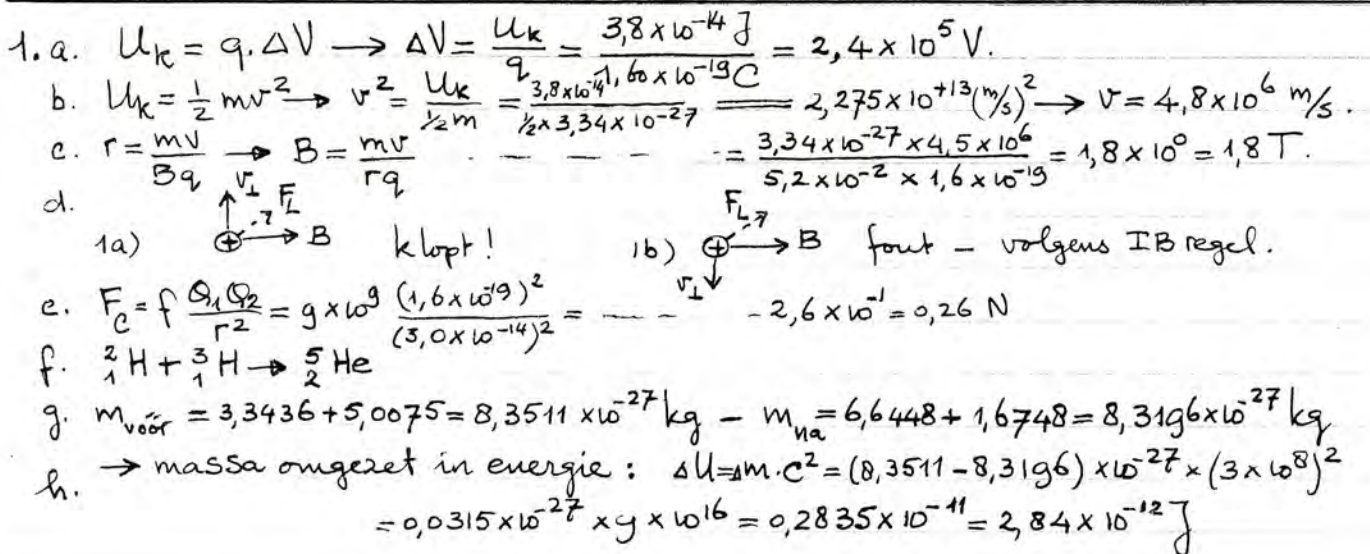 1.a. U_k = q.ΔV → ΔV = U_k/q = 3,8 x 10^-14 J / 1,60 x 10^-19 C = 2,4 x 10^5 V.
b. U_k = 1/2 mv^2 → v^2 = U_k / ½m = 3,8x10^-14 / ½ x 3,34 x 10^-27 = 2,275 x 10^+13 (m/s)^2 → v = 4,8 x 10^6 m/s.
c. r = mv/Bq → B = mv/rq - - - - = 3,34 x 10^-27 x 4,5 x 10^6 / 5,2 x 10^-2 x 1,6 x 10^-19 = 1,8 x 10^0 = 1,8 T.
d.
1a) v⊥ F_L ⊕ → B klopt! 1b) F_L ⊕ → B v⊥ fout – volgens IB regel.
e. F_C = f Q₁Q₂/r^2 = 9 x 10^9 (1,6 x 10^-19)^2 / (3,0 x 10^-14)^2 = - - - - 2,6 x 10^-1 = 0,26 N
f. ²₁H + ³₁H → ⁵₂He
g. m_vóór = 3,3436 + 5,0075 = 8,3511 x 10^-27 kg – m_na = 6,6448 + 1,6748 = 8,3196 x 10^-27 kg
h. → massa omgezet in energie : ΔU = Δm.c^2 = (8,3511 – 8,3196) x 10^-27 x (3 x 10^8)^2
= 0,0315 x 10^-27 x 9 x 10^16 = 0,2835 x 10^-11 = 2,84 x 10^-12 J